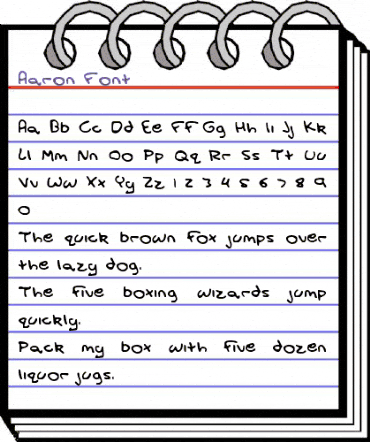 Aaron Font
Aa Bb Cc Dd Ee Ff Gg Hh Ii Jj Kk
Ll Mm Nn Oo Pp Qq Rr Ss Tt Uu
Vv Ww Xx Yy Zz 1 2 3 4 5 6 7 8 9
0
The quick brown fox jumps over
the lazy dog.
The five boxing wizards jump
quickly.
Pack my box with five dozen
liquor jugs.